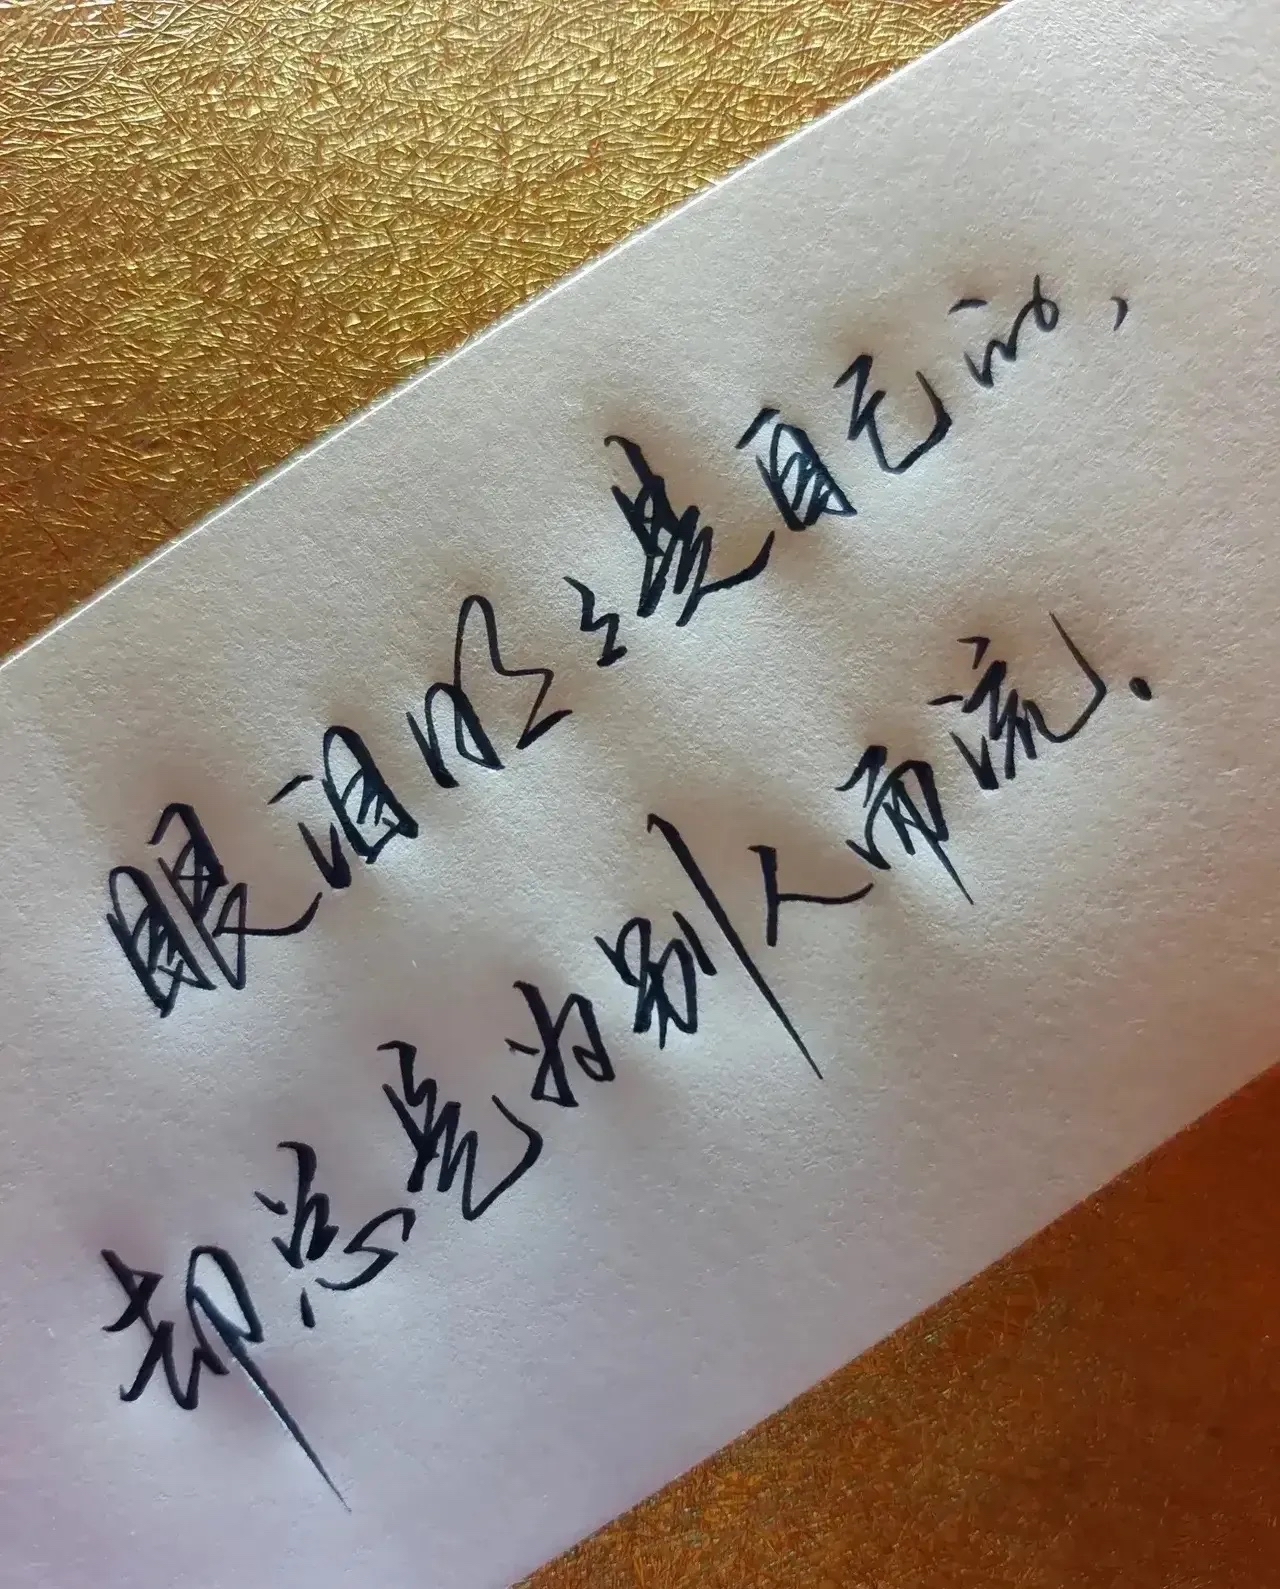 眼泪明明是自己的,
却总是为别人而流.